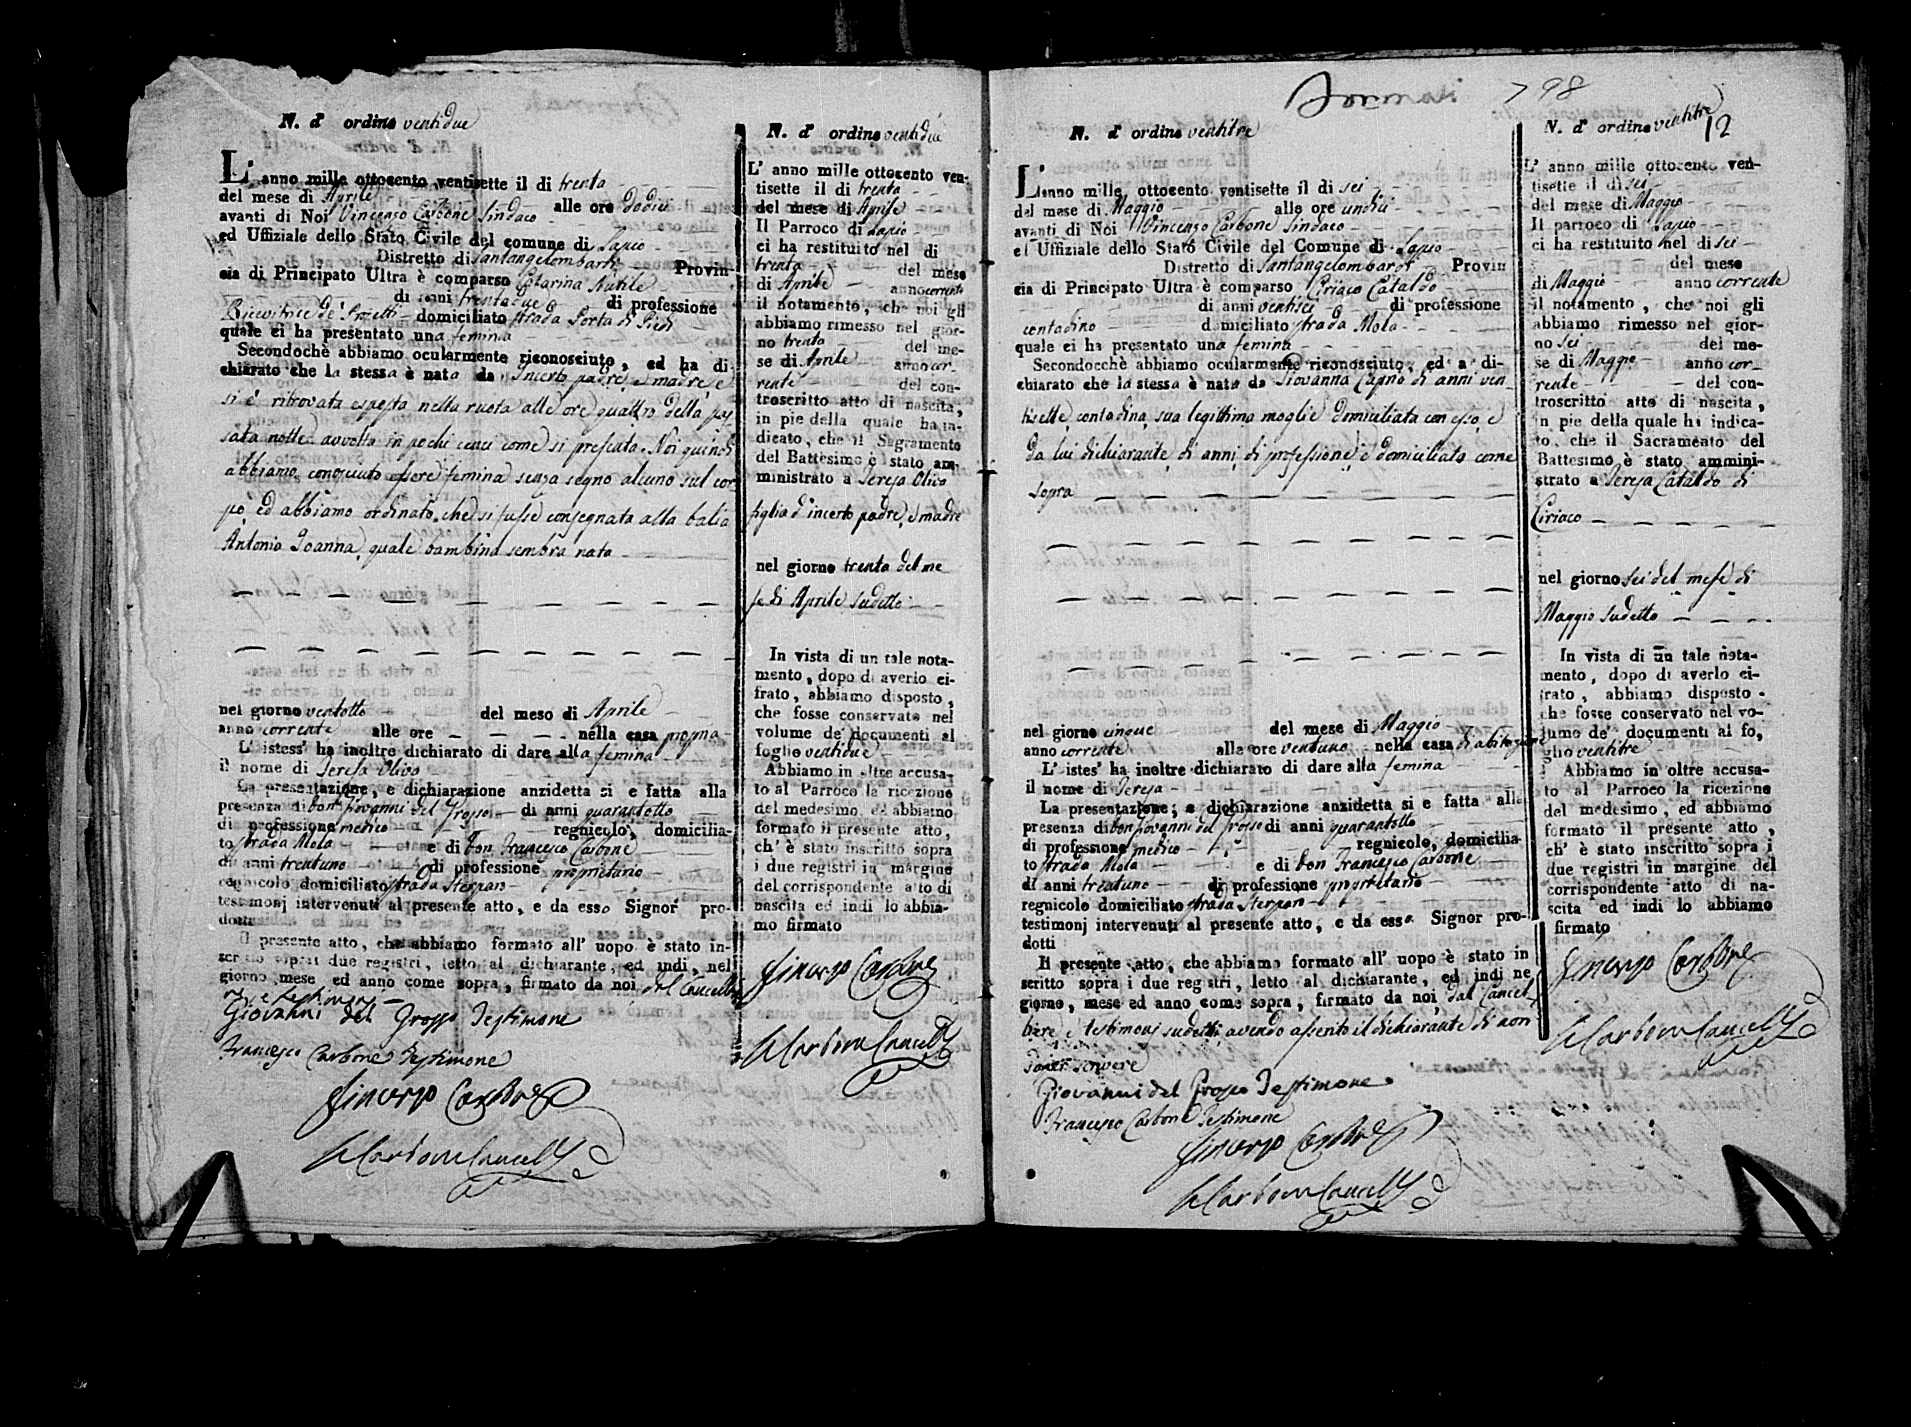 N. d' ordine ventidue
L' anno mille ottocento ventisette il di trenta
del mese di Aprile alle ore dodici
avanti di Noi Vincenzo Carbone Sindaco
ed Uffiziale dello Stato Civile del comune di Lapio
Distretto di Santangelombardi Provin-
cia di Principato Ultra è comparso Catarina
di anni trentadue di professione
Ricevitrice de' Projetti domiciliato strada Porta di Piedi
quale ci ha presentato una femina
Secondochè abbiamo ocularmente riconosciuto, ed ha di-
chiarato che la stessa è nata da incerto padre, e madre e
si è ritrovata esposta nella ruota alle ore quattro della pas
sata notte avvolta in pochi cenci come si presenta. Noi quindi
abbiamo conosciuto essere femina senza segno alcuno sul cor
po ed abbiamo ordinato che si fusse consegnata alla balia
Antonia Joanna, quale bambina sembra nata
nel giorno ventotto del mese di Aprile
anno corrente alle ore nella casa propria
L' istess' ha inoltre dichiarato di dare alla femina
il nome di Teresa Olivo
La presentazione, e dichiarazione anzidetta si è fatta alla
presenza di Don Giovanni del Grosso di anni quarantotto
di professione medico regnicolo, domicilia-
to strada Mola e di Don Francesco Carbone
di anni trentuno di professione proprietario
regnicolo domiciliato strada Sterparo
testimonj intervenuti al presente atto, e da esso Signor pro-
dotti
Il presente atto, che abbiamo formato all' uopo è stato in-
scritto sopra i due registri, letto al dichiarante, ed indi, nel
giorno mese ed anno come sopra, firmato da noi dal Cancellie
re, e testimonj
Giovanni del Grosso Testimone
Francesco Carbone Testimone
Vincenzo Carbone
Carbone Cancell.
N. d' ordine ventidue
L' anno mille ottocento ven-
tisette il di trenta
del mese di Aprile
Il Parroco di Lapio
ci ha restituito nel di
trenta del mese
di Aprile anno corrente
il notamento, che noi gli
abbiamo rimesso nel gior-
no trenta del me-
se di Aprile anno cor_
rente del con-
troscritto atto di nascita,
in pie della quale ha in-
dicato, che il Sagramento
del Battesimo è stato am-
ministrato a Teresa Olivo
figlia d' incerto padre, e madre
nel giorno trenta del me
se di Aprile sudetto
In vista di un tale nota-
mento, dopo di averlo ci-
frato, abbiamo disposto,
che fosse conservato nel
volume de' documenti al
foglio ventidue
Abbiamo in oltre accusa-
to al Parroco la ricezione
del medesimo, ed abbiamo
formato il presente atto,
ch' è stato inscritto sopra
i due registri in margine
del corrispondente atto di
nascita ed indi lo abbia-
mo firmato
Vincenzo Carbone
Carbone Cancell.
798
12
N. d' ordine ventitre
L' anno mille ottocento ventisette il di sei
del mese di Maggio alle ore undici
avanti di Noi Vincenzo Carbone Sindaco
ed Uffiziale dello Stato Civile del Comune di Lapio
Distretto di Santangelombardi Provin
cia di Principato Ultra è comparso Ciriaco Cataldo
di anni ventisei di professione
contadino domiciliato strada Mola
quale ci ha presentato una femina
Secondocchè abbiamo ocularmente riconosciuto, ed ha di-
chiarato che la stessa è nata da Giovanna Caprio di anni ven
tisette, contadina, sua legittima moglie domiciliata con esso, e
da lui dichiarante di anni di professione e domiciliato come
sopra
nel giorno cinque del mese di Maggio
anno corrente alle ore ventuno nella casa di abitazione
L' istes' ha inoltre dichiarato di dare alla femina
il nome di Teresa
La presentazione; e dichiarazione anzidetta si è fatta alla
presenza di Don Giovanni del Grosso di anni quarantotto
di professione medico regnicolo, domicilia-
to strada Mola e di Don Francesco Carbone
di anni trentuno di professione proprietario
regnicolo domiciliato strada Sterparo
testimonj intervenuti al presente atto, e da esso Signor pro-
dotti
Il presente atto, che abbiamo formato all' uopo è stato in
scritto sopra i due registri, letto al dichiarante, ed indi ne
giorno, mese ed anno come sopra, firmato da noi dal Cancel
liere e testimonj sudetti avendo asserito il dichiarante di non
saper scrivere
Giovanni del Grosso Testimone
Francesco Carbone Testimone
Vincenzo Carbone
Carbone Cancell.
N. d' ordine ventitre
L' anno mille ottocento ven-
tisette il di sei
del mese di Maggio
Il parroco di Lapio
ci ha restituito nel di sei
del mese
di Maggio anno corrente
il notamento, che noi gli
abbiamo rimesso nel gior-
no sei del me-
se di Maggio anno cor_
rente del con-
troscritto atto di nascita,
in pie della quale ha indica-
to, che il Sacramento del
Battesimo è stato ammini-
strato a Teresa Cataldo di
Ciriaco
nel giorno sei del mese di
Maggio sudetto
In vista di un tale nota-
mento, dopo di averlo ci-
frato, abbiamo disposto
che fosse conservato nel vo-
lume de' documenti al fo,
glio ventitre
Abbiamo in oltre accusa-
to al Parroco la ricezione
del medesimo, ed abbiamo
formato il presente atto,
ch' è stato inscritto sopra i
due registri in margine del
corrispondente atto di na-
scita ed indi lo abbiamo
firmato
Vincenzo Carbone
Carbone Cancell.